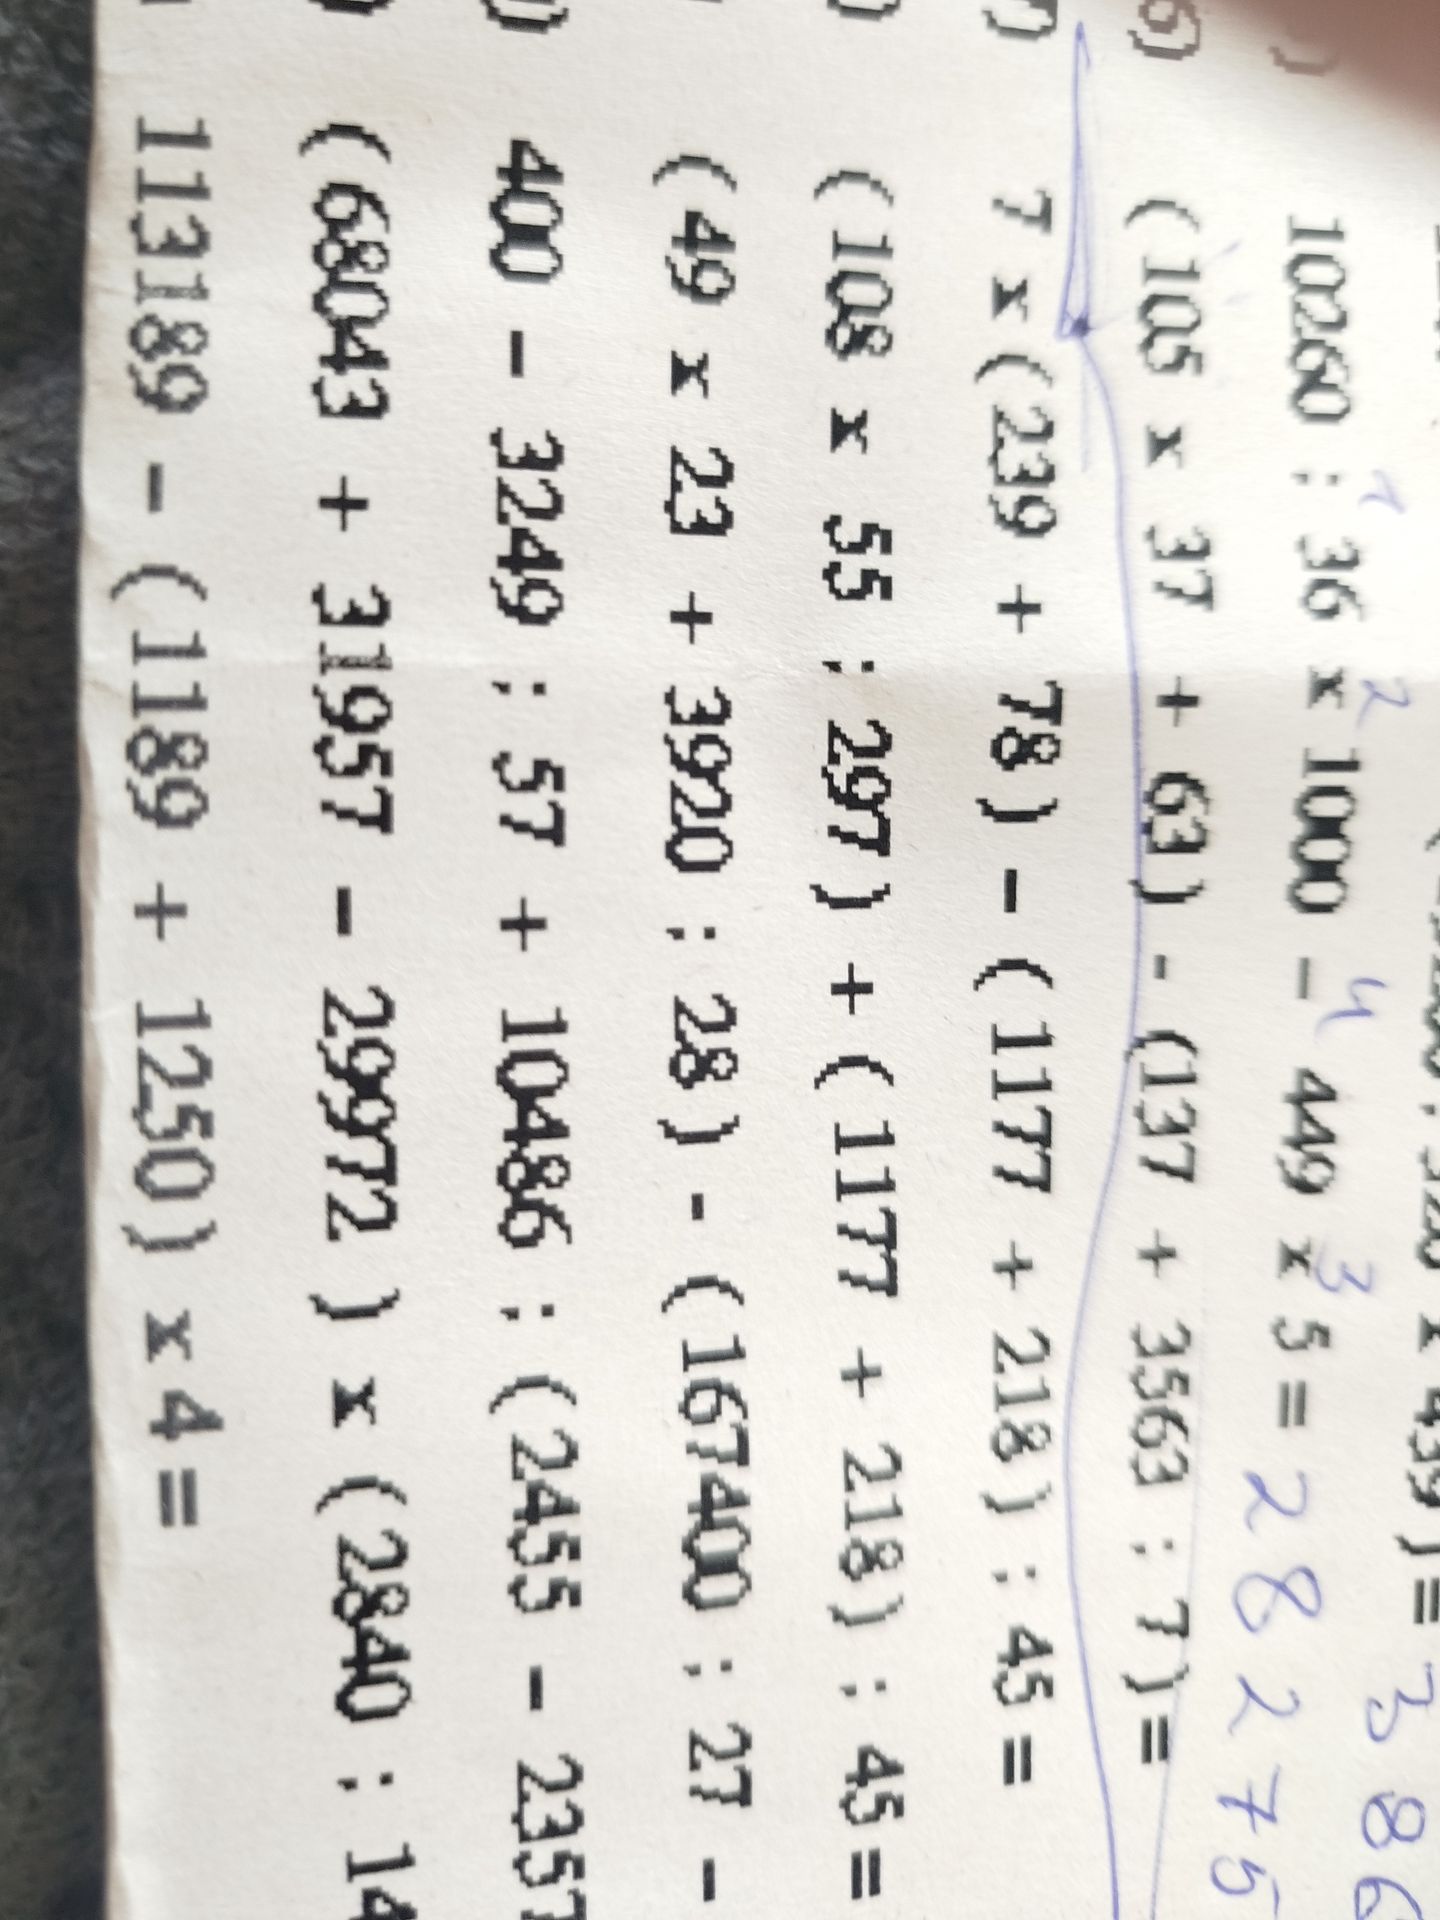 x 439) = 386
10260 : 36 x 1000 - 449 x 5 = 28275
1 2 4 3
6) (105 x 37 + 63) - (137 + 3563 : 7) =
7 x (239 + 78) - (1177 + 218) : 45 =
(108 x 55 : 297) + (1177 + 218) : 45 =
(49 x 23 + 3920 : 28) - (167400 : 27 -
400 - 3249 : 57 + 10486 : (2455 - 2357
(68043 + 31957 - 29972) x (2840 : 14
113189 - (1189 + 1250) x 4 =